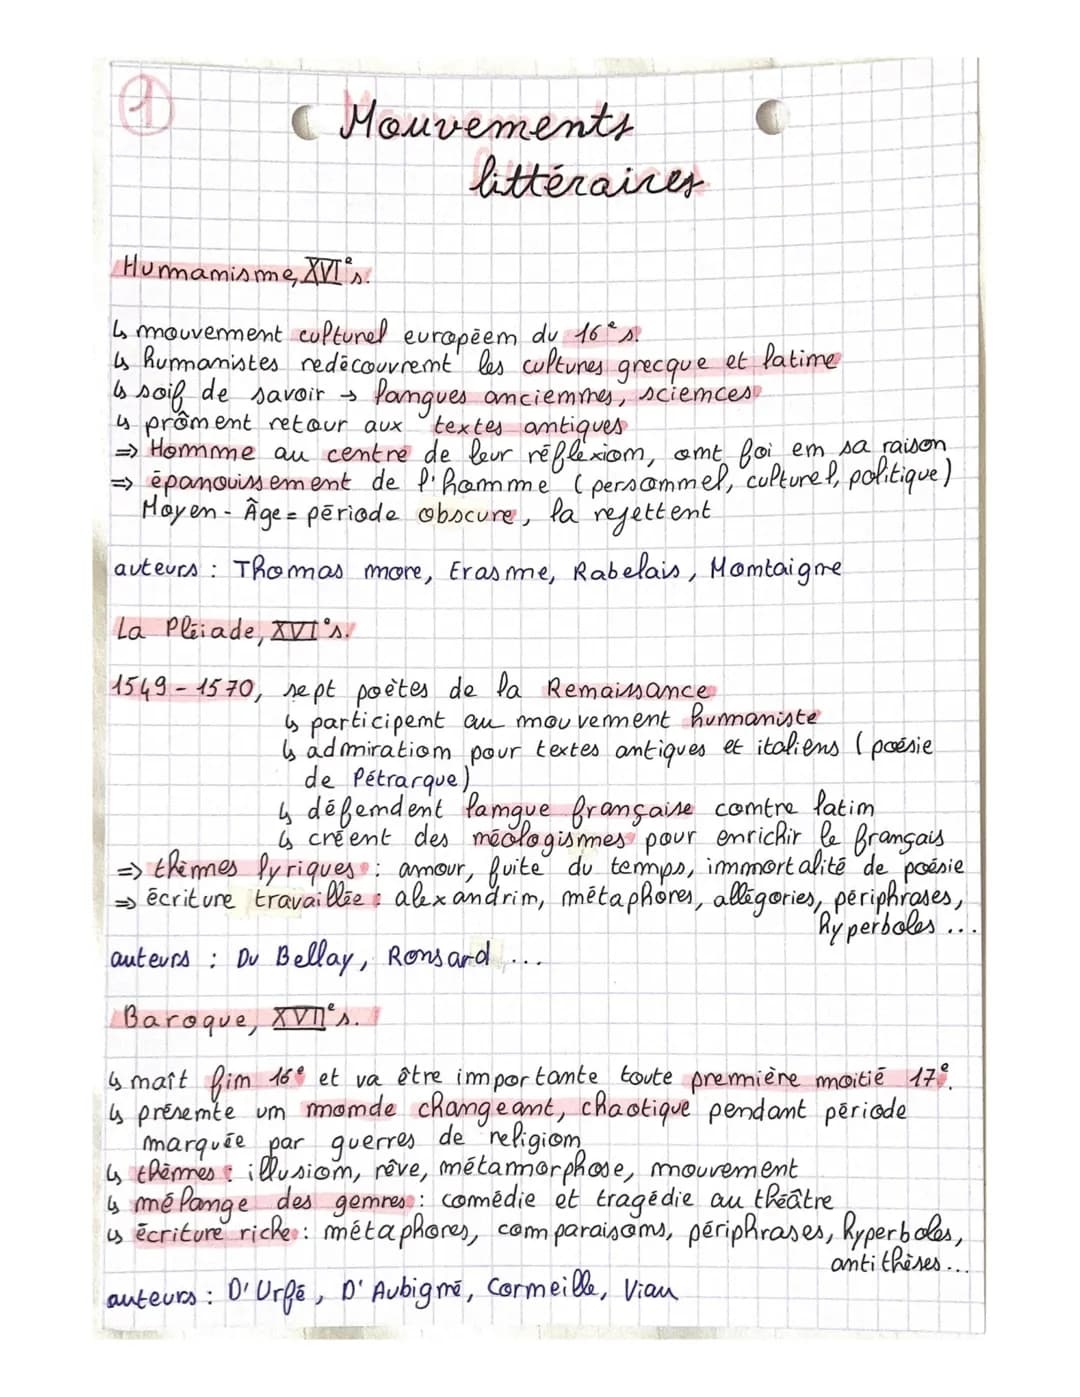 1
Mouvements
littéraires
Humanisme, XVIᵉ s.
↳ mouvement culturel européen du 16ᵉ s.
↳ humanistes redécouvrent les cultures grecque et latine
↳ soif de savoir → langues anciennes, sciences
↳ prônent retour aux textes antiques
⇒ Homme au centre de leur réflexion, ont foi en sa raison
⇒ épanouissement de l'homme (personnel, culturel, politique)
Moyen-Âge = période obscure, la rejettent
auteurs : Thomas more, Erasme, Rabelais, Montaigne
La Pléiade, XVIᵉ s.
1549 - 1570, sept poètes de la Renaissance
↳ participent au mouvement humaniste
↳ admiration pour textes antiques et italiens (poésie
de Pétrarque)
↳ défendent langue française contre latin
↳ créent des néologismes pour enrichir le français
⇒ thèmes lyriques : amour, fuite du temps, immortalité de poésie
⇒ écriture travaillée : alexandrin, métaphores, allégories, périphrases,
hyperboles ...
auteurs : Du Bellay, Ronsard ...
Baroque, XVIIᵉ s.
↳ naît fin 16ᵉ et va être importante toute première moitié 17ᵉ.
↳ présente un monde changeant, chaotique pendant période
marquée par guerres de religion
↳ thèmes : illusion, rêve, métamorphose, mouvement
↳ mélange des genres : comédie et tragédie au théâtre
↳ écriture riche : métaphores, comparaisons, périphrases, hyperboles,
antithèses ...
auteurs : D'Urfé, D'Aubigné, Corneille, Viau